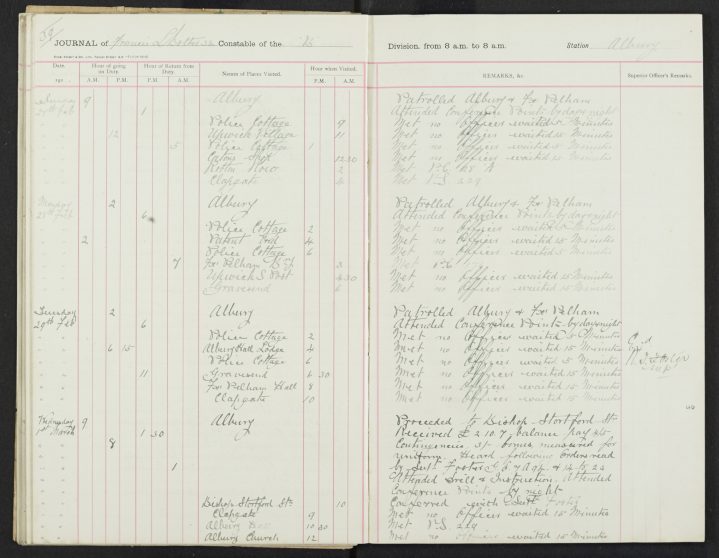 JOURNAL of Constable of the Division, from 8 a.m. to 8 a.m. Station Albury
Date. Hour of going on Duty. Hour of Return from Duty. Names of Places Visited. Hour when Visited. REMARKS, &c. Superior Officer's Remarks.
A.M. P.M. P.M. A.M. P.M. A.M.
Sunday 9 Albury Patrolled Albury & Fx Pelham
27th Feb 1 Attended Conference Points by day & night
Police Cottage 9 Met no Officers waited 5 Minutes
12 Upwick Village 11 Met no Officers waited 15 Minutes
5 Police Cottage 1 Met no Officers waited 5 Minutes
12 30 Met no Officers waited 15 Minutes
2 Met P.C.
Clapgate 4 Met P.S. 229
Monday 2 Albury Patrolled Albury & Fx Pelham
28th Feb 6 Attended Conference Points by day & night
Police Cottage 2 Met no Officers waited 5 Minutes
2 Patient End 4 Met no Officers waited 15 Minutes
Police Cottage 6 Met no Officers waited 5 Minutes
7 Fx Pelham 3 Met P.C.
Upwick S. Post 4 30 Met no Officers waited 15 Minutes
Gravesend 6 Met no Officers waited 15 Minutes
Tuesday 2 Albury Patrolled Albury & Fx Pelham
29th Feb 6 Attended Conference Points by day & night
Police Cottage 2 Met no Officers waited 5 Minutes
6 15 Albury Hall Lodge 4 Met no Officers waited 15 Minutes
Police Cottage 6 Met no Officers waited 5 Minutes
11 Gravesend 6 30 Met no Officers waited 15 Minutes
Fx Pelham Hall 8 Met no Officers waited 15 Minutes
Clapgate 10 Met no Officers waited 15 Minutes
Wednesday 9 Albury Proceeded to Bishop Stortford Stn
1st March 1 30 Received £2 10 7 balance pay
8 Contingencies 3/- bonus measured for
uniform. Heard following orders read
1 by Supt Foster
Attended Drill & Instruction. Attended
Conference Points by night
Bishop Stortford Stn 10 Conferred with Supt Foster
Clapgate 9 Met no Officers waited 15 Minutes
Albury 10 30 Met P.S. 229
Albury Church 12 Met no Officers waited 15 Minutes